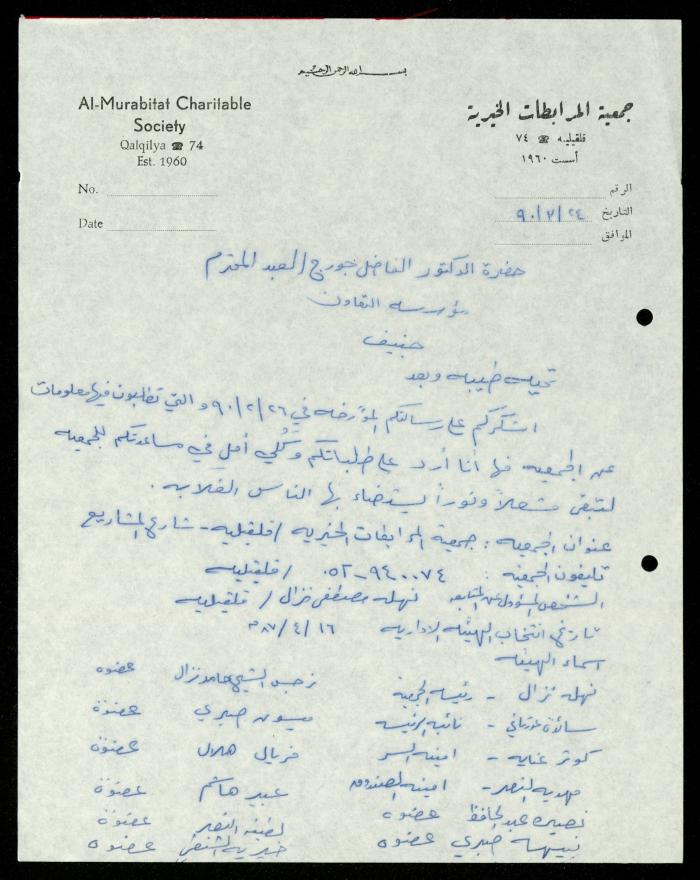 بسم الله الرحمن الرحيم
Al-Murabitat Charitable
Society
Qalqilya ☎ 74
Est. 1960
No.
Date
جمعية المرابطات الخيرية
قلقيليه ☎ ٧٤
أسست ١٩٦٠
الرقم
التاريخ ٢٤/٧/٩٠
الموافق
حضرة الدكتور الفاضل جورج العبد المحترم
مؤسسه التعاون
جنيف
تحيه طيبه وبعد
اشكركم على رسالتكم المؤرخه في ٩٠/٢/٢٦ و التي تطلبون فيها معلومات
عن الجمعيه فها أنا أرد على طلباتكم وكلي أمل في مساعدتكم للجمعيه
لتبقى مشعلاً ونوراً يستضاء بها الناس الغلابه .
عنوان الجمعيه : جمعية المرابطات الخيريه / قلقيليه - شارع المشاريع
تليفون الجمعيه : ٩٤٠٠٧٤-٠٥٢ / قلقيليه
الشخص المسؤول عن المتابعه نهله مصطفى نزال / قلقيليه
تاريخ انتخاب الهيئه الاداريه ١٦/٤/٨٧م
اسماء الهيئه
نهله نزال - رئيسه الجمعية نرجس الشيخ حامد نزال عضوه
سائدة - نائبه الرئيسه ميسون صبري عضوة
كوثر عنايه - امينه السر فريال هلال عضوة
مهديه النصر - امينه الصندوق عبير هاشم عضوة
نصيره عبد الحافظ عضوه لطيفه النصر عضوة
نبيهه صبري عضوه خيريه الشنطي عضوه